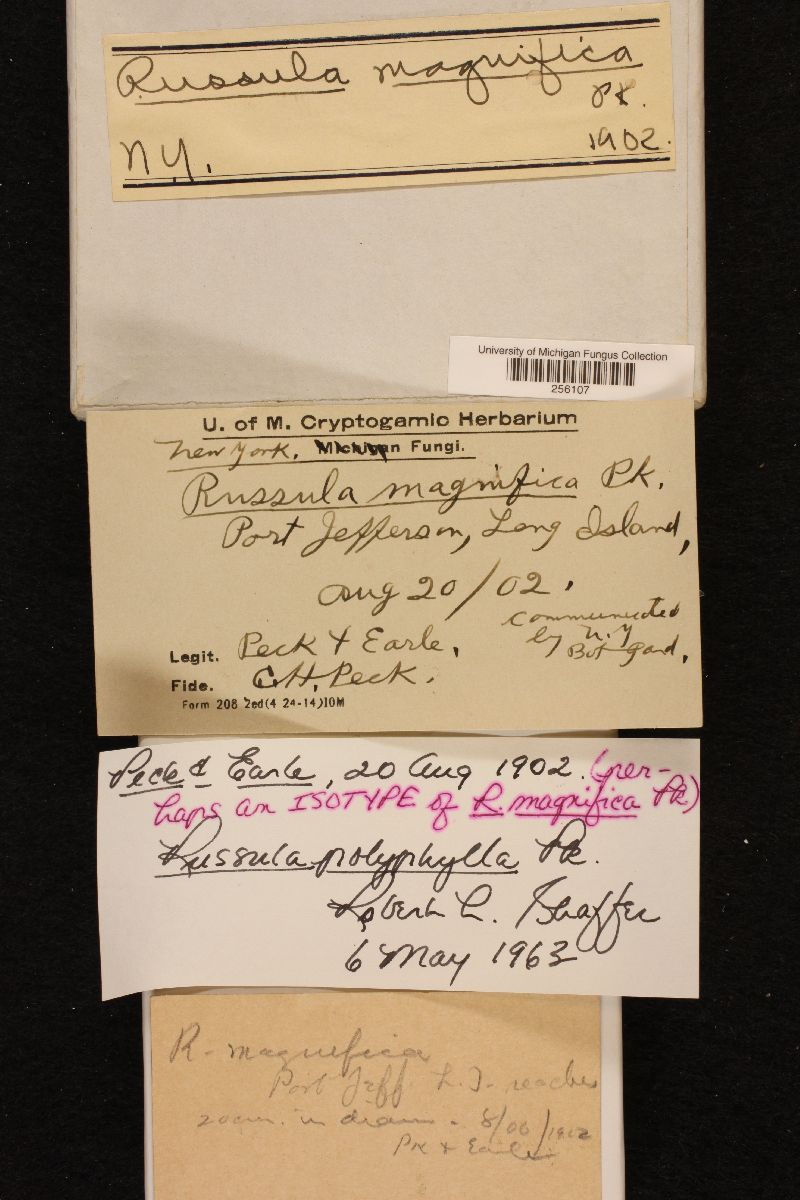 Russula magnifica
Pk.
N.Y. 1902.
University of Michigan Fungus Collection
256107
U. of M. Cryptogamic Herbarium
New York. Michigan Fungi.
Russula magnifica Pk.
Port Jefferson, Long Island,
Aug 20/02.
communicated
by N.Y
Bot Gard.
Legit. Peck & Earle.
Fide. C.H. Peck.
Form 208 2ed(4 24-14)10M
Peck & Earle, 20 Aug 1902. (per-
haps an ISOTYPE of R. magnifica Pk)
Russula polyphylla Pk.
Robert L. Shaffer
6 May 1963
R - magnifica
Port Jeff L.I. reaches
20 cm. in diam. - 8/ /1902
Pk & Earle